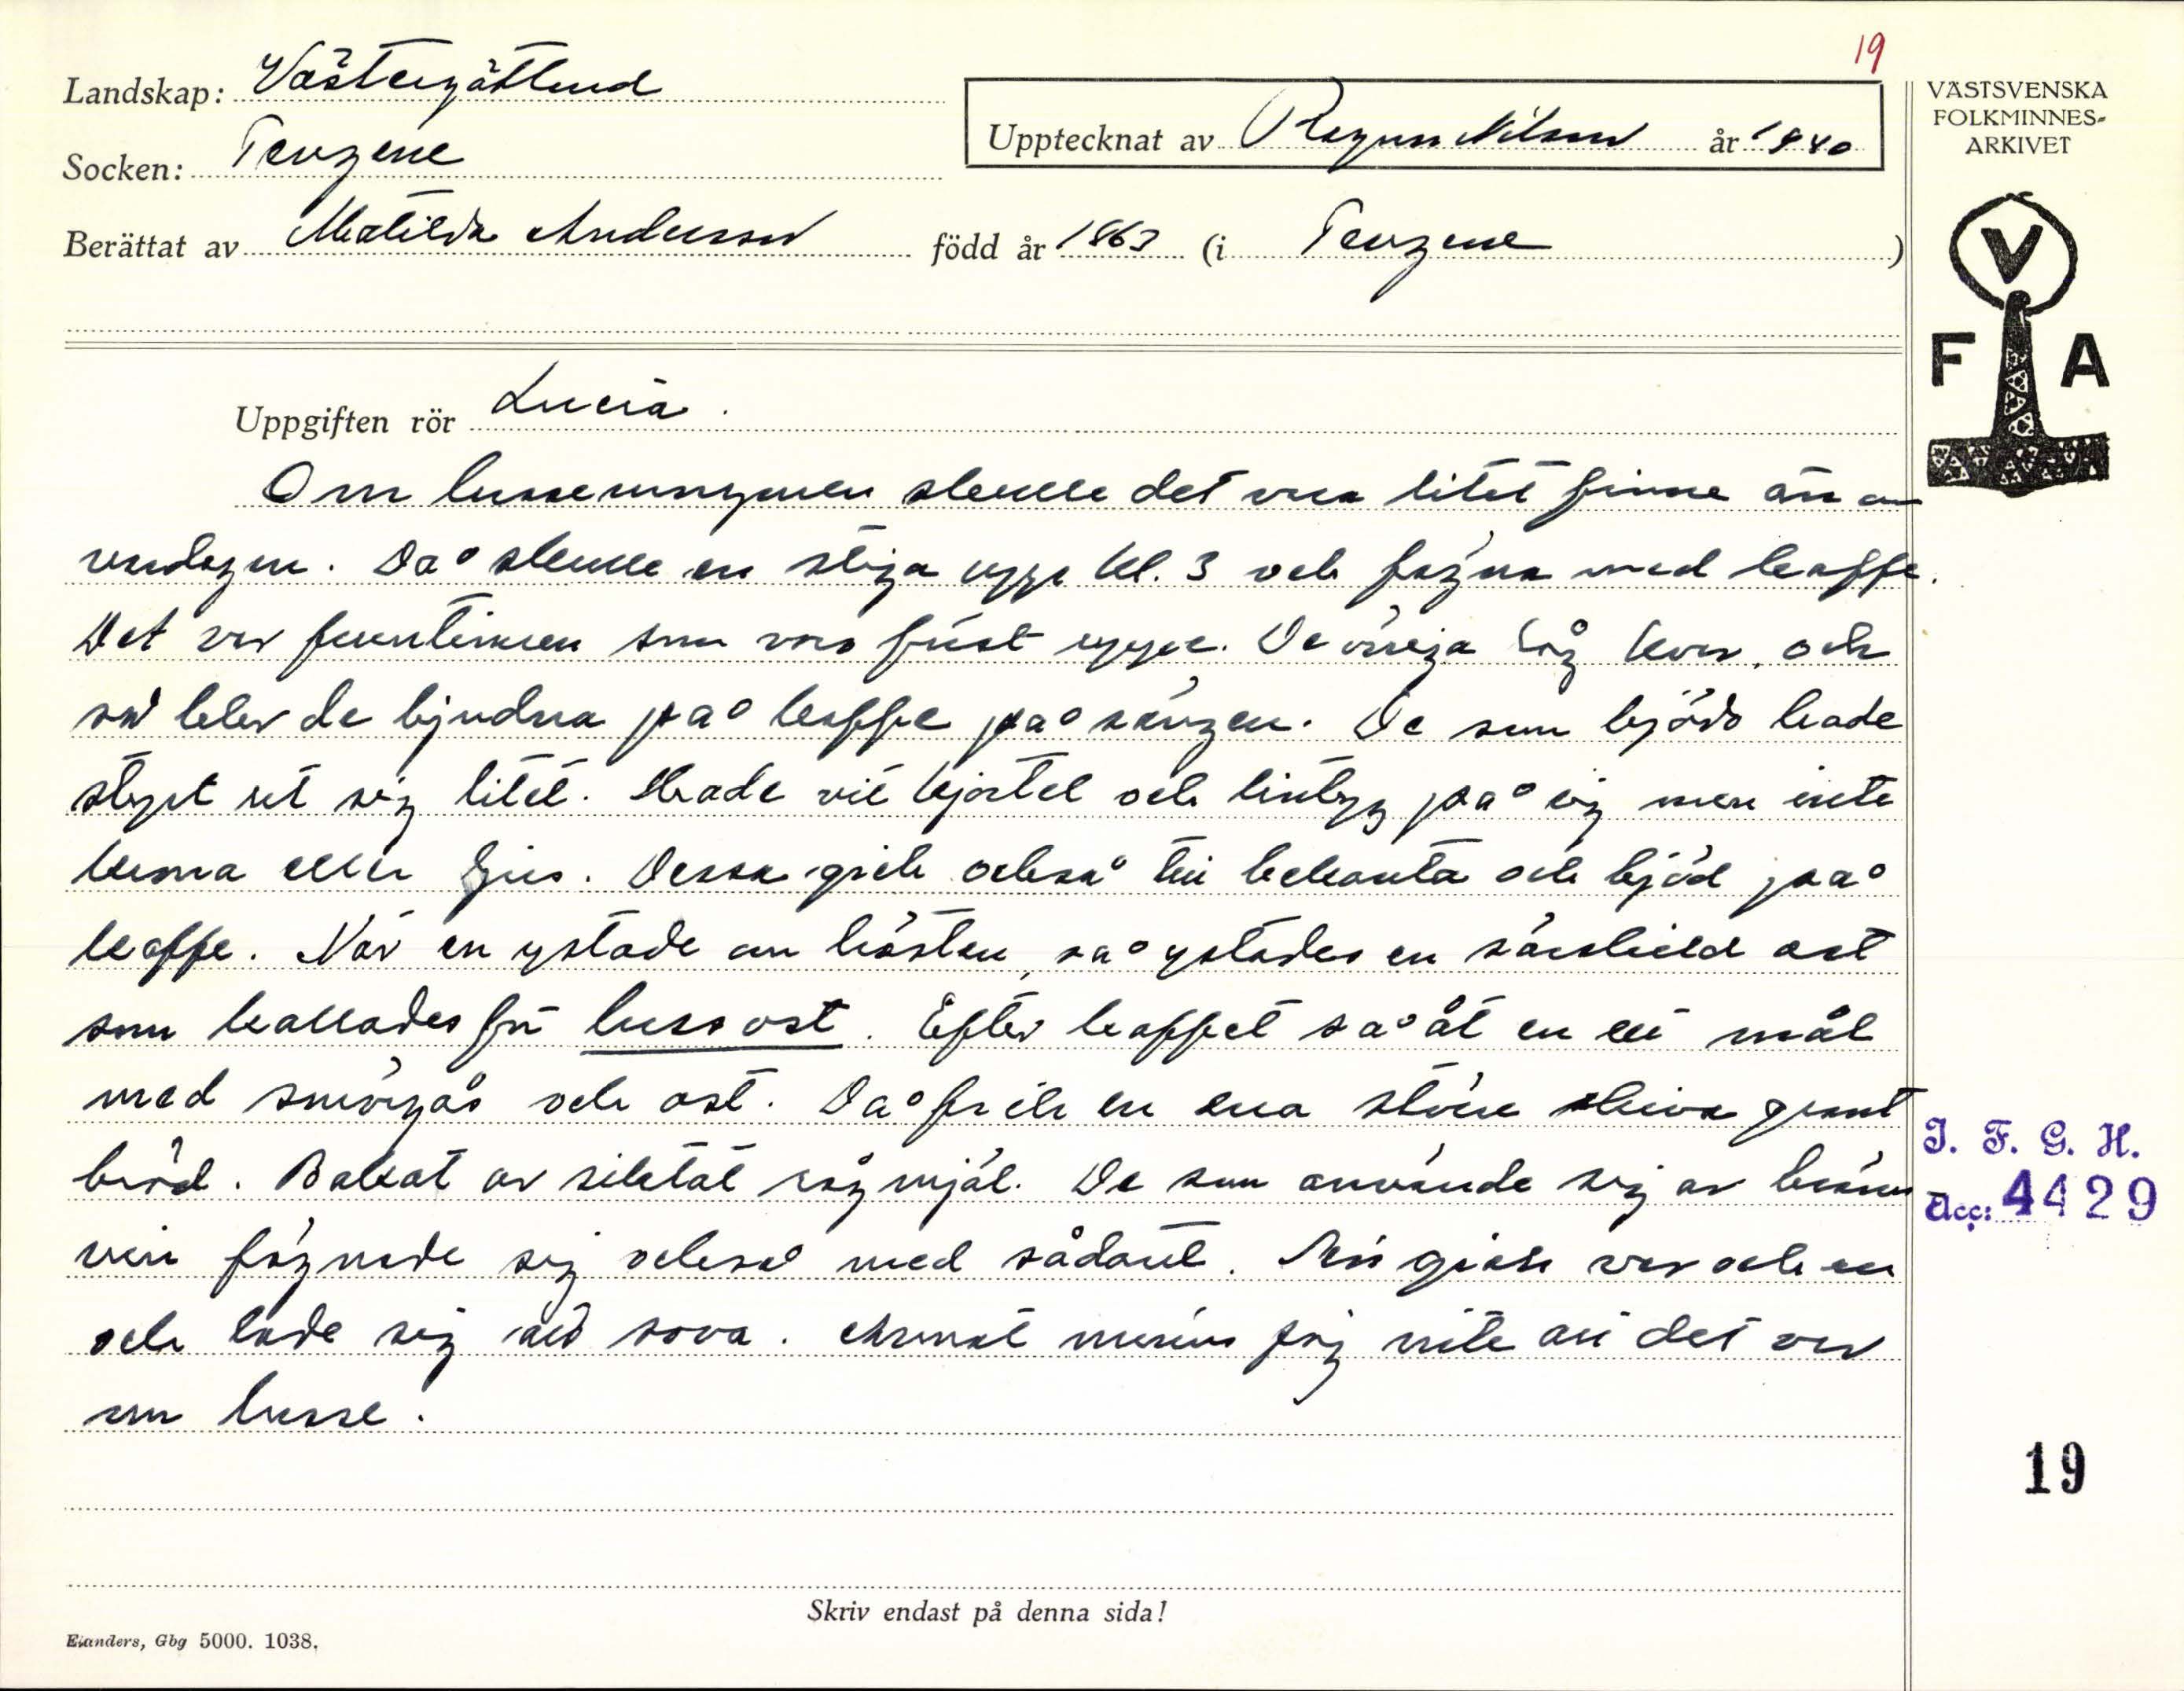 19
Landskap: Västergötland
Socken: Tengene
Upptecknat av Ragnar Nilsson år 1940
VÄSTSVENSKA
FOLKMINNES-
ARKIVET
Berättat av Matilda Andersson född år 1863 (i Tengene)
V
F A
Uppgiften rör Lucia.
Om lussemorgonen skulle det vara litet finare än om
vardagen. Då skulle en stiga upp kl. 3 och fägna med kaffe.
Det var fruntimren som voro först uppe. De övriga låg kvar, och
så blev de bjudna på kaffe på sängen. De som bjödo hade
styrt ut sig litet. Hade vit kjortel och lintyg på sig men inte
krona eller ljus. Dessa gick också till bekanta och bjöd på
kaffe. När en ystade om hösten, så ystades en särskild ost
som kallades för lusseost. Efter kaffet så åt en ett mål
med smörgås och ost. Då fick en ena större skiva grant
bröd. Bakat av siktat rågmjöl. De som använde sig av bränn
vin fägnade sig också med sådant. Sen gick var och en
och lade sig att sova. Annat minns jag inte att det var
om lusse.
I. F. G. H.
Acc: 4429
19
Skriv endast på denna sida!
Elanders, Gbg 5000. 1038.